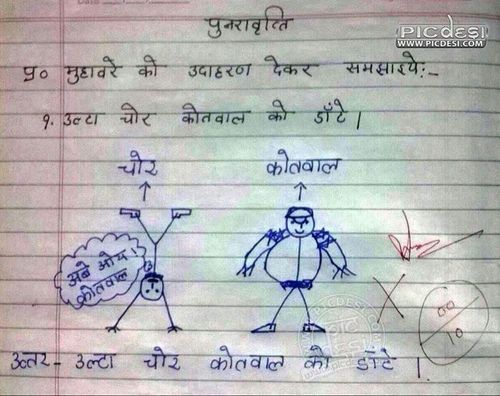 पुनरावृत्ति
PICDESI
WWW.PICDESI.COM
प्र० मुहावरे को उदाहरण देकर समझाइये:-
१. उल्टा चोर कोतवाल को डाँटे।
चोर कोतवाल
अबे ओय!
कोतवाल
00
10
उत्तर- उल्टा चोर कोतवाल को डाँटे।